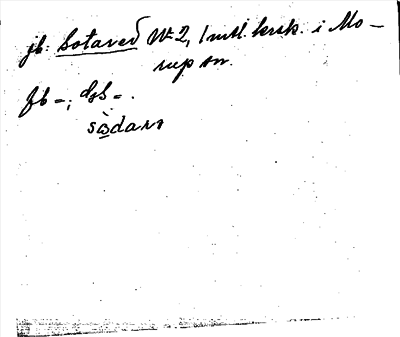 jb: Sotared № 2, 1 mtl. krsk. i Mo-
rup sn.
fb =; dsb = .
sòdarə